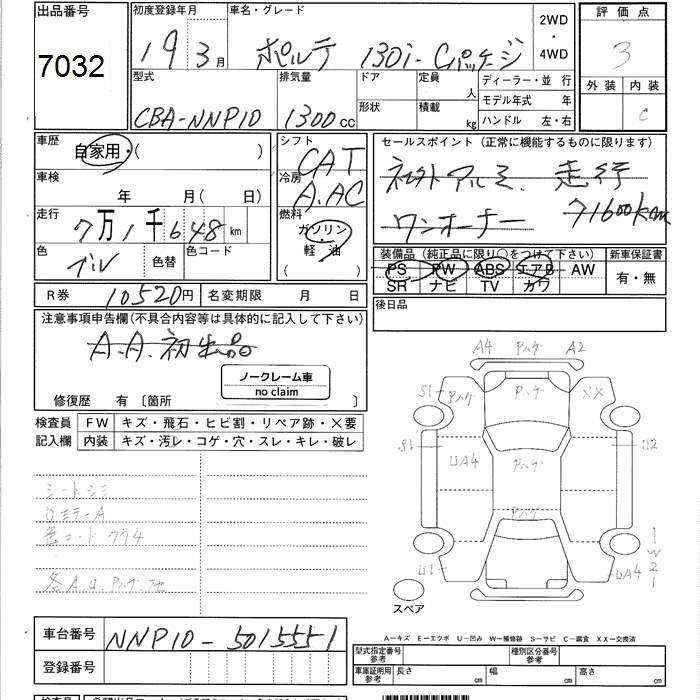 出品番号
7032
初度登録年月
19年3月
車名・グレード
ポルテ 130i-Cパッケージ
2WD・4WD
評価点
3
外装 内装
C
型式
CBA-NNP10
排気量
1300cc
ドア
形状
定員 人
積載 kg
ディーラー・並行
モデル年式 年
ハンドル 左・右
車歴
自家用・( )
車検
年 月( 日)
走行
7万1千648km
色
ブル
色替
色コード
シフト
CAT
冷房
A.AC
燃料
ガソリン
軽油
( )
セールスポイント(正常に機能するものに限ります)
社外アルミ. 走行
ワンオーナー 71600km
装備品(純正品に限り○をつけて下さい)
PS PW ABS エアB AW
SR ナビ TV カワ
新車保証書
有・無
R券 10520円 名変期限 月 日
後日品
注意事項申告欄(不具合内容等は具体的に記入して下さい)
A.A.初出品
ノークレーム車
no claim
修復歴 有〔箇所
検査員 FW キズ・飛石・ヒビ割・リペア跡・×要
記入欄 内装 キズ・汚レ・コゲ・穴・スレ・キレ・破レ
シートシミ
DミラーA
色コード 774
各A.U.
A4 パハゲ A2
S1 パハゲ パハゲ XX
S1 UA4 パハゲ U2
パハゲ
U1 UA4
スペア
A-キズ E-エクボ U-凹み W-補修跡 S-サビ C-腐食 XX-交換済
車台番号
NNP10-5015551
登録番号
型式指定番号
参考
種別区分番号
参考
車庫証明用
参考
長さ cm 幅 cm 高さ cm
検査員